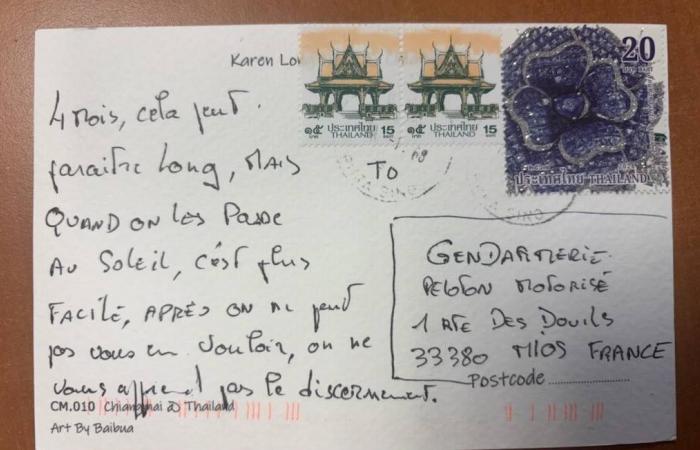 Karen Lo
4 mois, cela peut
paraitre long, MAIS
QUAND ON LES PASSE
AU SOLEIL, c'est plus
FACILE, APRÈS ON ne peut
pas vous en vouloir, on ne
vous apprend pas le discernement.
CM.010 Chiangmai Thailand
Art By Baibua
๑๕ ประเทศไทย 15
บาท THAILAND
๑๕ ประเทศไทย 15
บาท THAILAND
20
ประเทศไทย THAILAND
TO
GENDARMERIE
PELOTON MOTORISÉ
1 RTE DES DOUILS
33380 MIOS FRANCE
Postcode